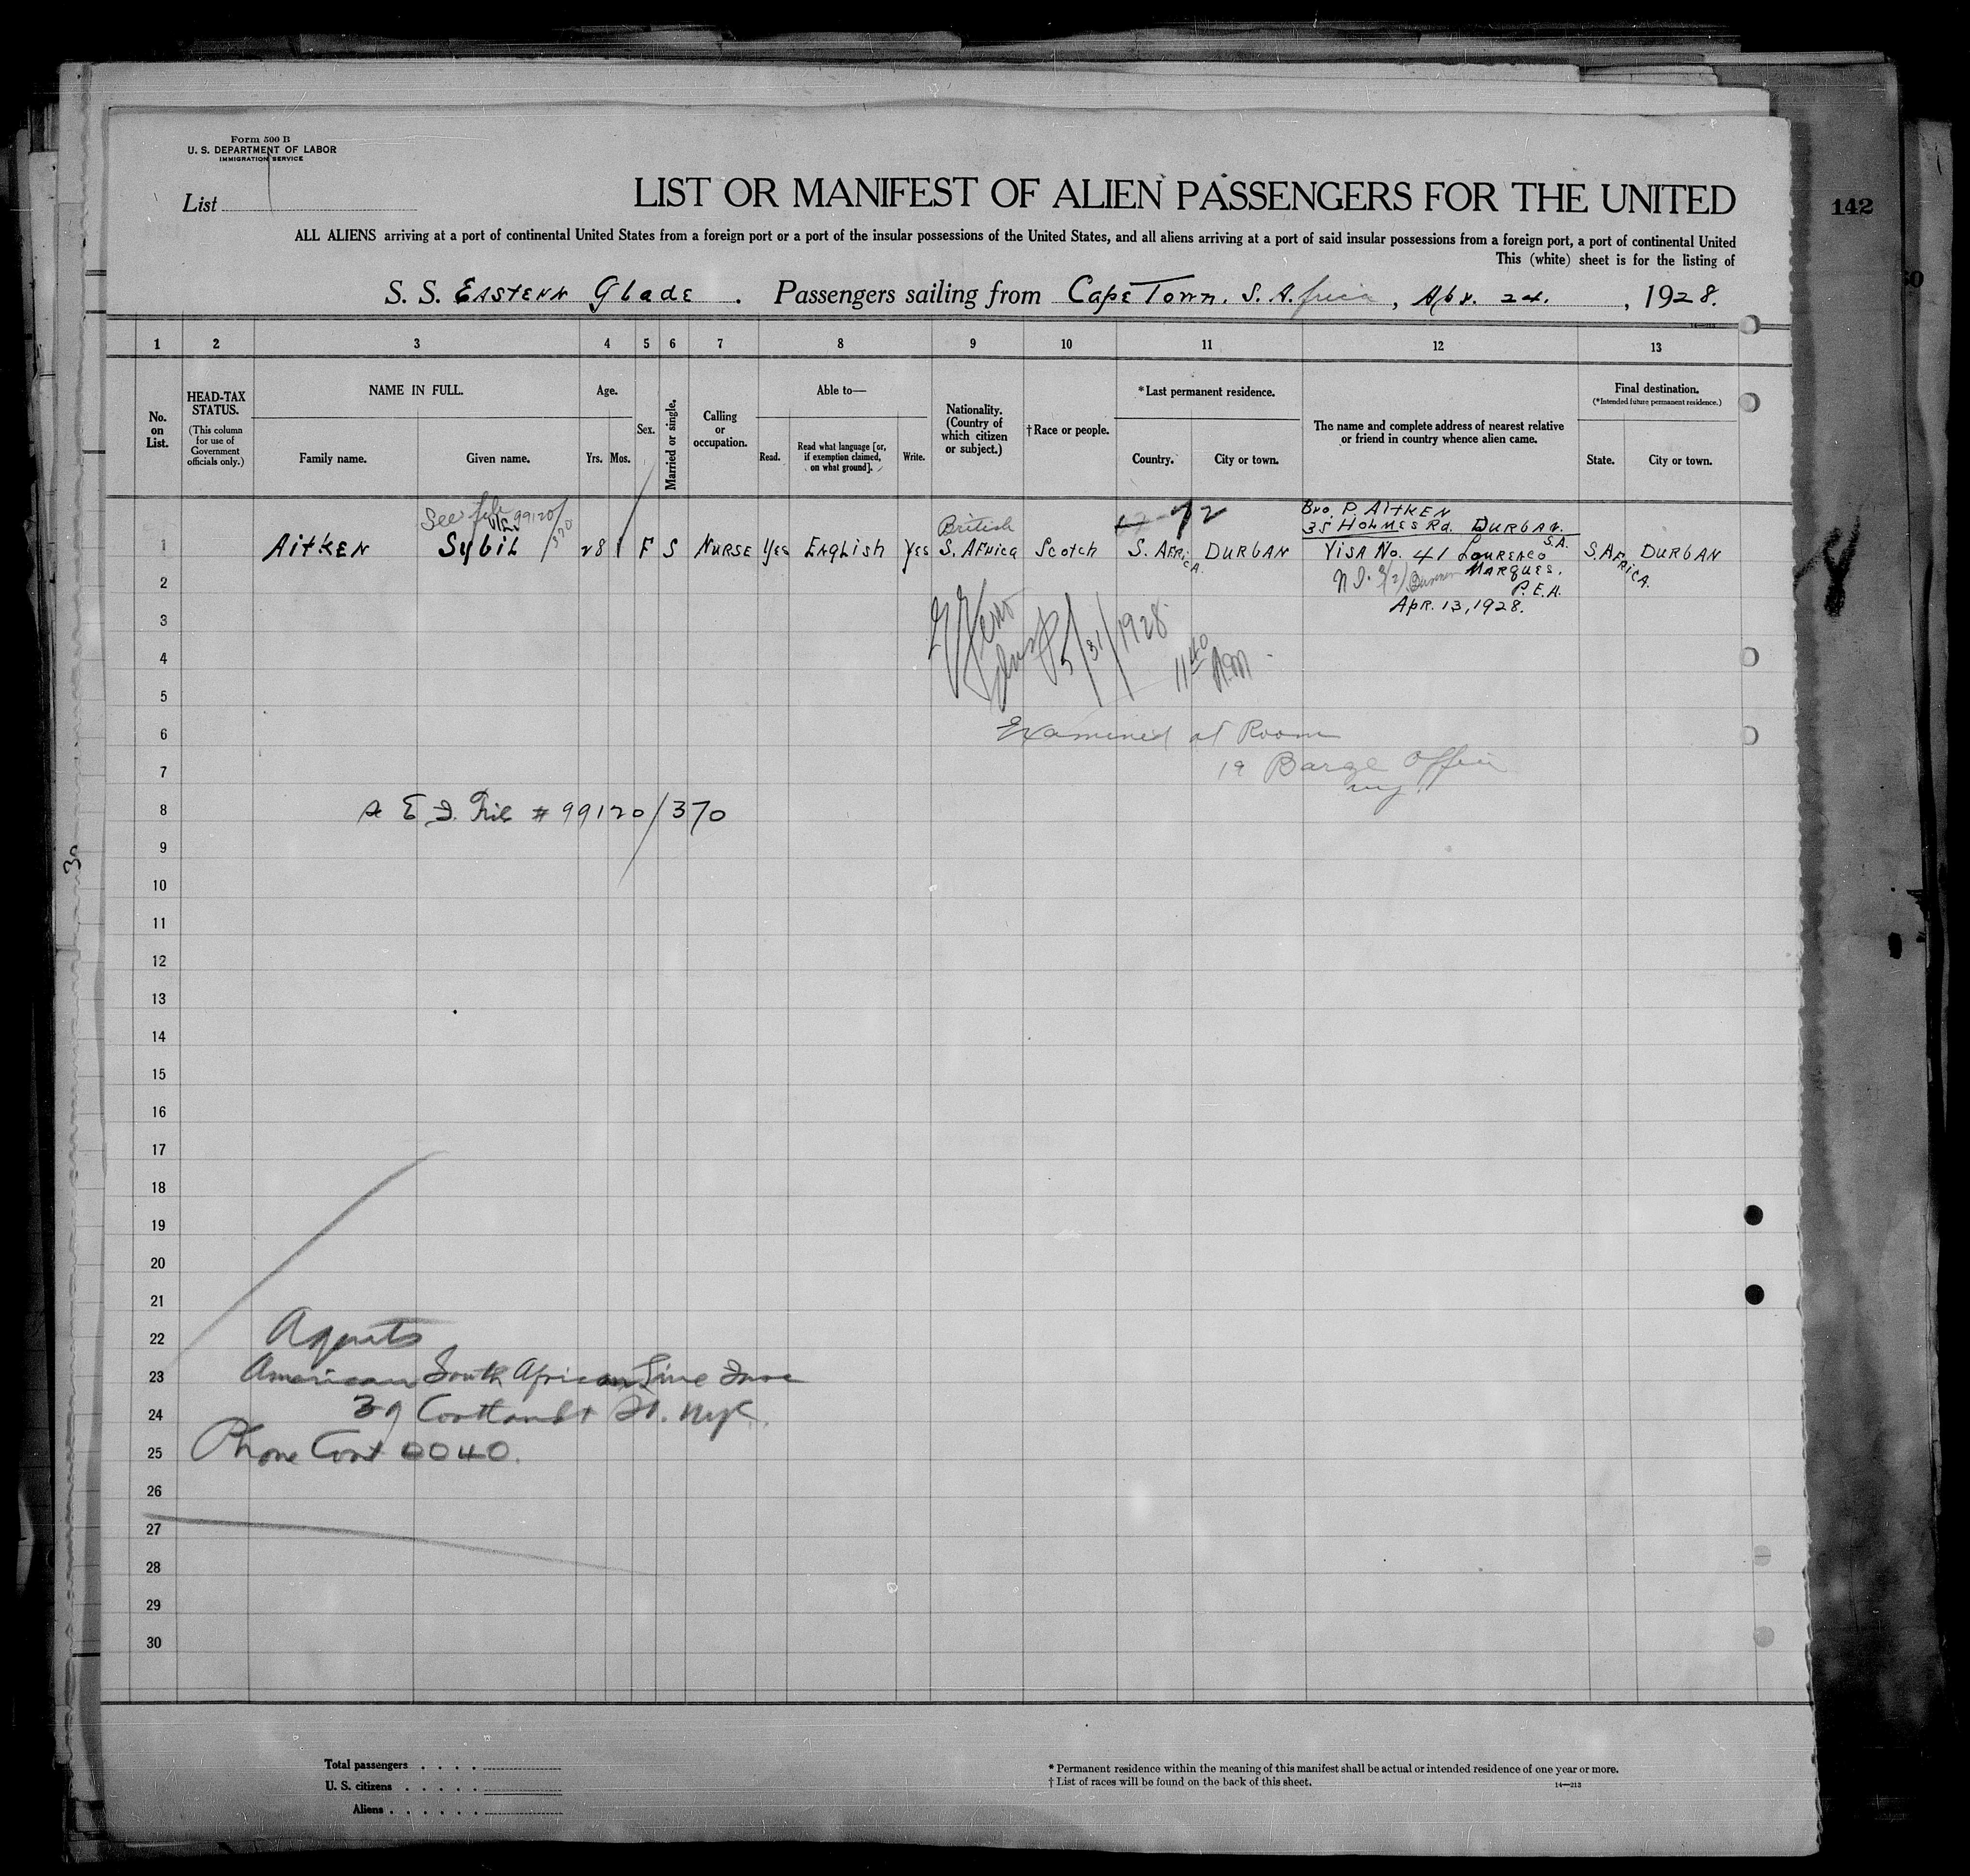 Form 500 B
U. S. DEPARTMENT OF LABOR
IMMIGRATION SERVICE
142
List
LIST OR MANIFEST OF ALIEN PASSENGERS FOR THE UNITED
ALL ALIENS arriving at a port of continental United States from a foreign port or a port of the insular possessions of the United States, and all aliens arriving at a port of said insular possessions from a foreign port, a port of continental United
This (white) sheet is for the listing of
S. S. EASTERN GLADE . Passengers sailing from CAPE TOWN. S. Africa , Apr. 24. , 1928.
14—213
1 2 3 4 5 6 7 8 9 10 11 12 13
No. on List.
HEAD-TAX STATUS.
(This column for use of Government officials only.)
NAME IN FULL.
Family name. Given name.
Age.
Yrs. Mos.
Sex.
Married or single.
Calling or occupation.
Able to—
Read. Read what language [or, if exemption claimed, on what ground]. Write.
Nationality. (Country of which citizen or subject.)
†Race or people.
*Last permanent residence.
Country. City or town.
The name and complete address of nearest relative or friend in country whence alien came.
Final destination.
(*Intended future permanent residence.)
State. City or town.
See file 99120/370
British
72
Bro. P. AITKEN
35 HOLMES Rd. DURBAN. S.A.
1 AITKEN SYBIL 28 F S NURSE YES ENGLISH YES S. AFRICA SCOTCH S. AFRICA. DURBAN VISA No. 41 LOURENCO S. AFRICA. DURBAN
MARQUES.
P.E.A.
APR. 13, 1928.
2
3
4
5
5/31/1928
11 40 AM
6 Examined at Room
7 19 Barge Office
N.Y.
8 File # 99120/370
9
10
11
12
13
14
15
16
17
18
19
20
21
22 Agents
23 American South African Line Inc
24 39 Cortlandt St. NYC.
25 Phone Cort 0040.
26
27
28
29
30
Total passengers
U. S. citizens
Aliens
* Permanent residence within the meaning of this manifest shall be actual or intended residence of one year or more.
† List of races will be found on the back of this sheet.
14—213